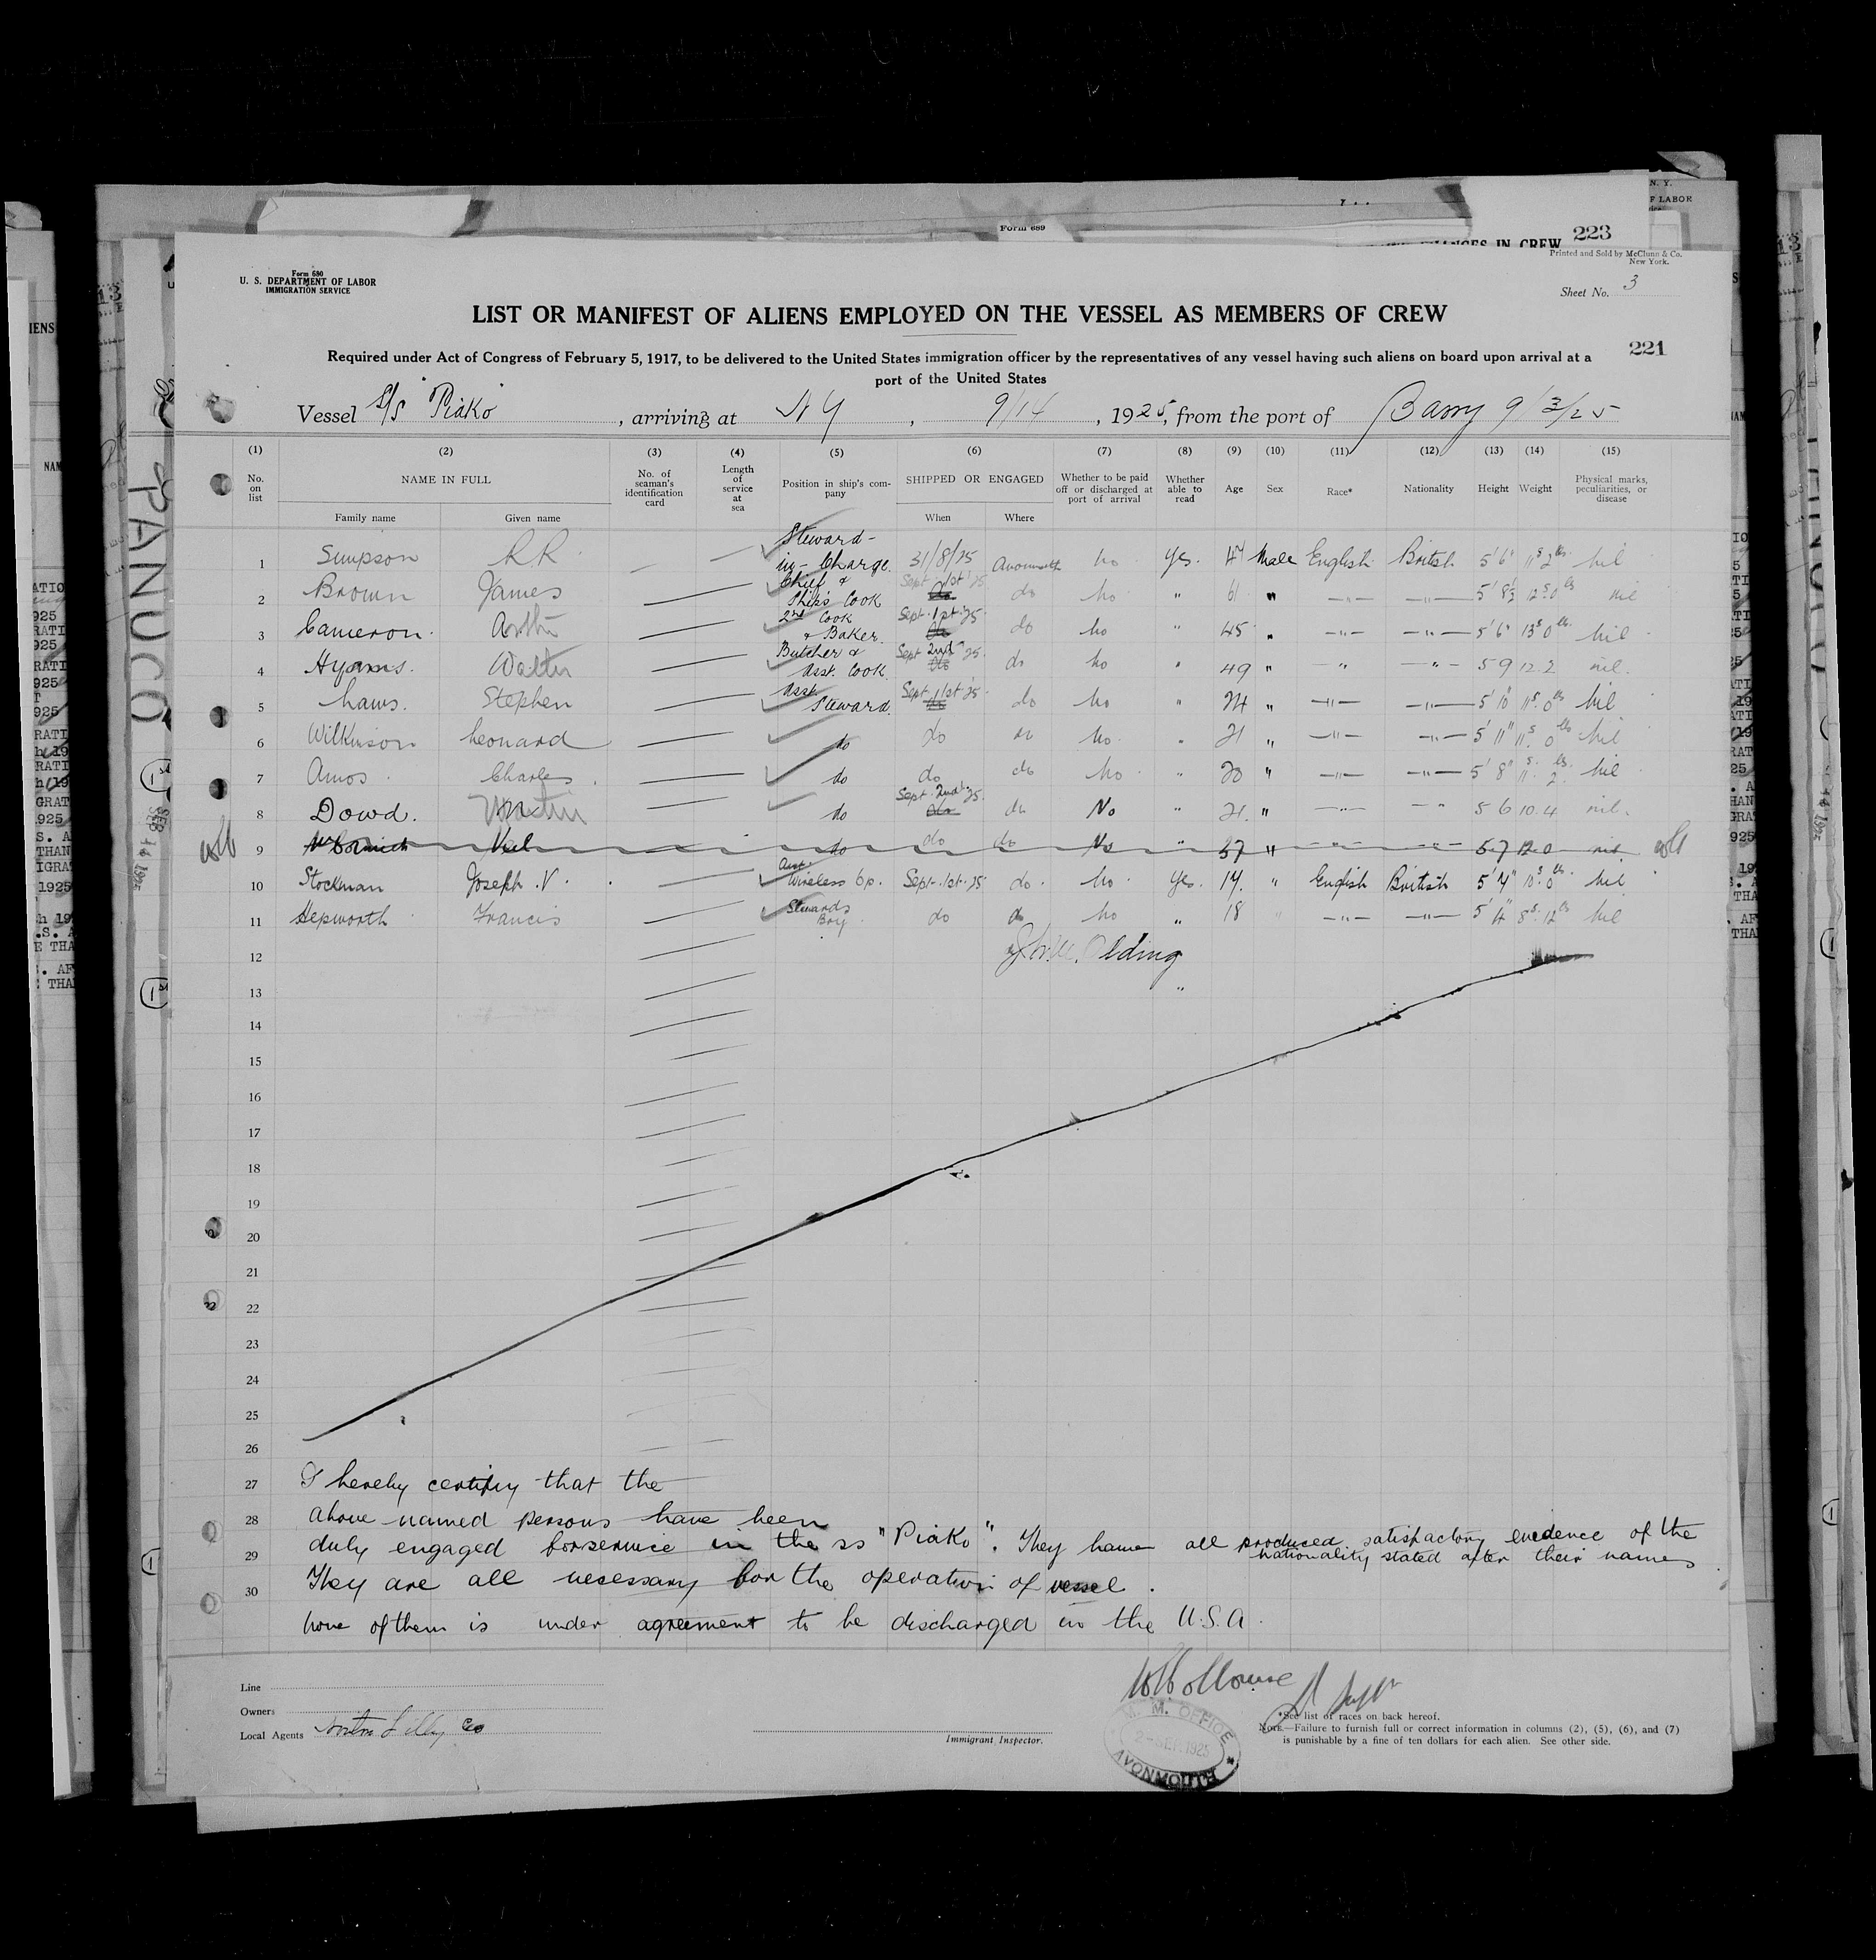 Form 689
CHANGES IN CREW 223
N. Y.
F LABOR
Printed and Sold by McClunn & Co.
New York.
Form 680
U. S. DEPARTMENT OF LABOR
IMMIGRATION SERVICE
Sheet No. 3
LIST OR MANIFEST OF ALIENS EMPLOYED ON THE VESSEL AS MEMBERS OF CREW
221
Required under Act of Congress of February 5, 1917, to be delivered to the United States immigration officer by the representatives of any vessel having such aliens on board upon arrival at a
port of the United States
Vessel S/S "Piako" , arriving at N Y , 9/14 , 1925, from the port of Barry 9/3/25
(1) (2) (3) (4) (5) (6) (7) (8) (9) (10) (11) (12) (13) (14) (15)
No. on list NAME IN FULL No. of seaman's identification card Length of service at sea Position in ship's company SHIPPED OR ENGAGED Whether to be paid off or discharged at port of arrival Whether able to read Age Sex Race* Nationality Height Weight Physical marks, peculiarities, or disease
Family name Given name When Where
1 Simpson R R Steward-in-Charge. 31/8/25 Avonmouth no Yes. 47 Male English British 5'6" 11s 2lbs nil
2 Brown James Chief & Ship's Cook Sept 1st '25 do no " 61 " —"— —"— 5' 8½ 12s 0lbs nil
3 Cameron. Arthur 2nd Cook & Baker. Sept. 1st '25 do no " 45 " —"— —"— 5'6" 13s 0lbs nil
4 Hyams. Walter Butcher & Asst. Cook. Sept 2nd '25 do no " 49 " —"— —"— 5 9 12.2 nil.
5 Laws. Stephen Asst. Steward. Sept. 1st '25 do no " 24 " —"— —"— 5' 10" 11s. 0lbs nil
6 Wilkinson Leonard do do do no. " 21 " —"— —"— 5' 11" 11s. 0lbs nil
7 Amos Charles do do do no " 20 " —"— —"— 5' 8" 11s. 2lbs. nil
8 Dowd. Martin do Sept. 2nd '25. do No " 21. " —"— —"— 5 6 10.4 nil.
9 Neil do do do No " 37 " —"— —"— 5.7 12.0 nil.
10 Stockman Joseph. V. Asst Wireless Op. Sept. 1st. 25 do. no Yes. 19. " English British 5' 4" 10s. 0lbs nil
11 Hepworth Francis Stewards Boy do do no " 18 " —"— —"— 5' 4" 8s. 12lbs nil
12 Olding
13 "
14
15
16
17
18
19
20
21
22
23
24
25
26
27 I hereby certify that the
28 above named persons have been
29 duly engaged for service in the ss "Piako". They have all produced satisfactory evidence of the
nationality stated after their names
30 They are all necessary for the operation of vessel.
None of them is under agreement to be discharged in the U.S.A.
Line
Owners
Local Agents Norton Lilly Co
Immigrant Inspector.
M. M. OFFICE
2 - SEP. 1925
AVONMOUTH
*See list of races on back hereof.
NOTE.—Failure to furnish full or correct information in columns (2), (5), (6), and (7)
is punishable by a fine of ten dollars for each alien. See other side.
PANUCO